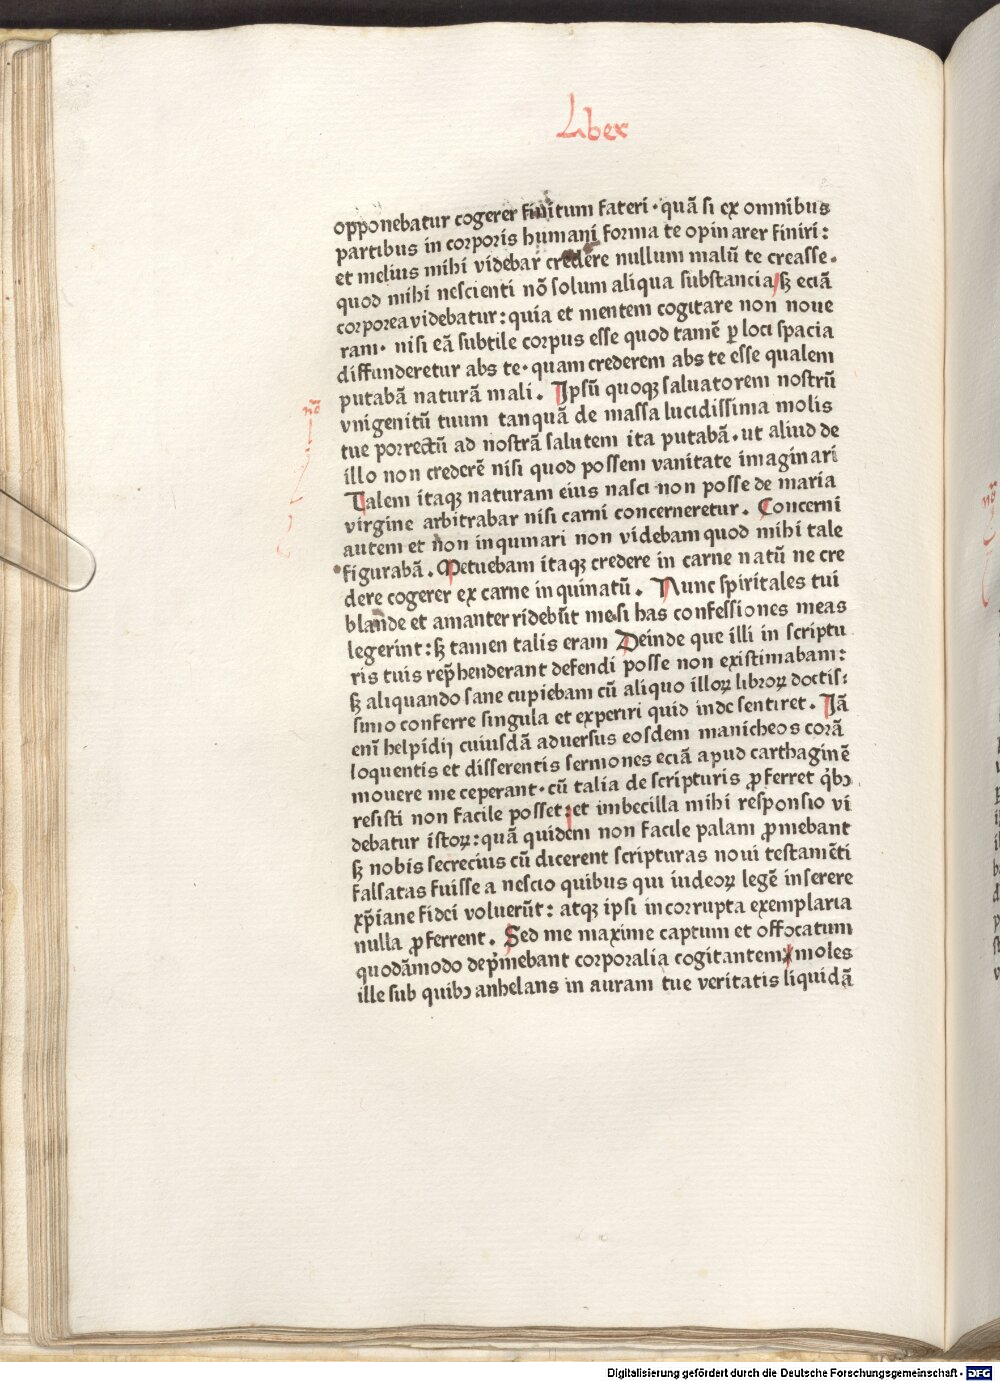 Liber
opponebatur cogerer finitum fateri · quā si ex omnibus
partibus in corporis humani forma te opinarer finiri :
et melius mihi videbar credere nullum malū te creasse .
quod mihi nescienti nō solum aliqua substancia sꝫ eciā
corporea videbatur : quia et mentem cogitare non noue
ram · nisi eā subtile corpus esse quod tamē ꝑ loci spacia
diffunderetur abs te · quam crederem abs te esse qualem
putabā naturā mali . Ipsū quoqꝫ saluatorem nostrū
vnigenitū tuum tanquā de massa lucidissima molis
tue porrectū ad nostrā salutem ita putabā . ut aliud de
illo non crederē nisi quod possem vanitate imaginari
Talem itaqꝫ naturam eius nasci non posse de maria
virgine arbitrabar nisi carni concerneretur . Concerni
autem et non inqumari non videbam quod mihi tale
figurabā . Metuebam itaqꝫ credere in carne natū ne cre
dere cogerer ex carne inquinatū . Nunc spiritales tui
blande et amanter ridebūt me si has confessiones meas
legerint : sꝫ tamen talis eram Deinde que illi in scriptu
ris tuis rep̄henderant defendi posse non existimabam :
sꝫ aliquando sane cupiebam cū aliquo illoꝝ libroꝝ doctis :
simo conferre singula et experiri quid inde sentiret . Iā
enī helpidij cuiusdā aduersus eosdem manicheos corā
loquentis et disserentis sermones eciā apud carthaginē
mouere me ceperant · cū talia de scripturis ꝓferret qͥbꝯ
resisti non facile posset : et imbecilla mihi responsio vi
debatur istoꝝ : quā quidem non facile palam ꝓmebant
sꝫ nobis secrecius cū dicerent scripturas noui testamēti
falsatas fuisse a nescio quibus qui iudeoꝝ legē inserere
xp̄iane fidei voluerūt : atqꝫ ipsi incorrupta exemplaria
nulla ꝓferrent . Sed me maxime captum et offocatum
quodāmodo dep̄mebant corporalia cogitantem moles
ille sub quibꝯ anhelans in auram tue veritatis liquidā
nō
Digitalisierung gefördert durch die Deutsche Forschungsgemeinschaft - DFG